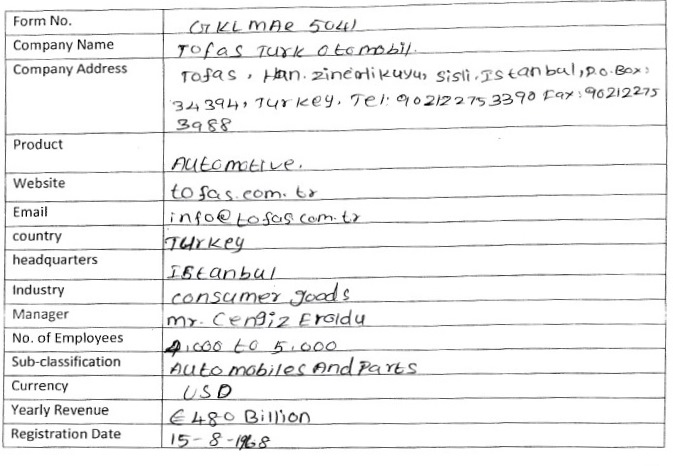 Form No. GKLMAE 5041
Company Name Tofas Turk otomobil.
Company Address Tofas, Han. zincirlikuyu, Sisli. Istanbul, P.O. Box:
34394, Turkey. Tel: 902122753390 Fax: 90212275
3988
Product Automotive.
Website tofas.com.tr
Email info@tofas.com.tr
country Turkey
headquarters Istanbul
Industry consumer goods
Manager mr. Cengiz Eroldu
No. of Employees 4,000 to 5,000
Sub-classification Automobiles And Parts
Currency USD
Yearly Revenue € 480 Billion
Registration Date 15-8-1968